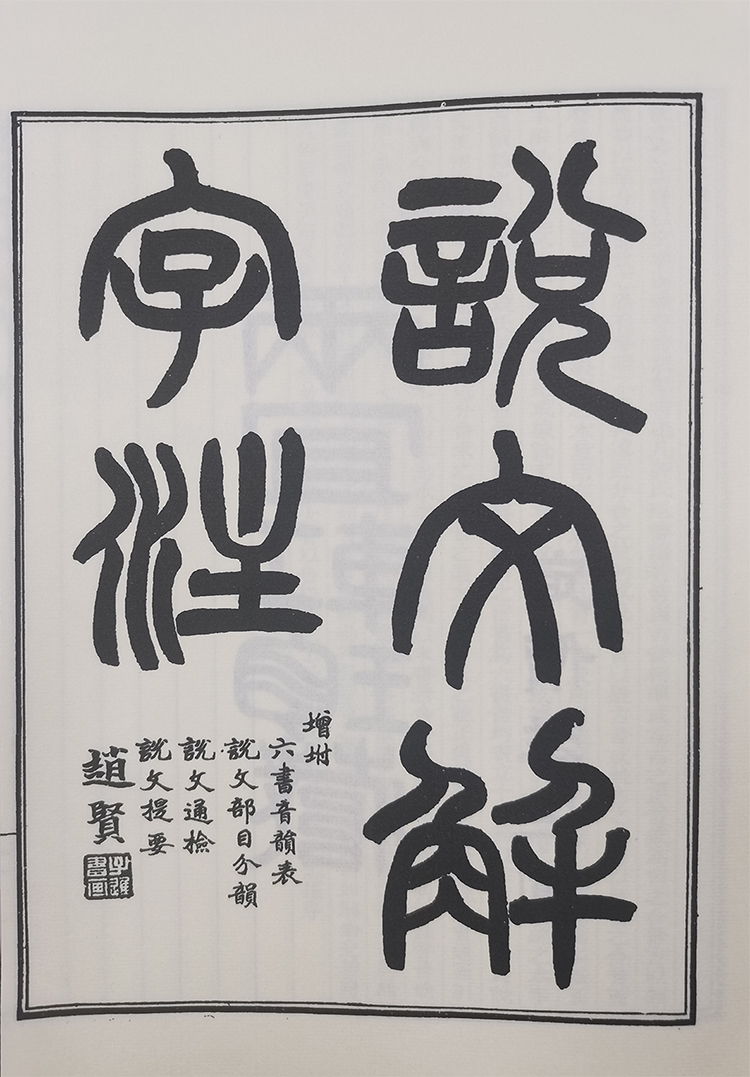 說文解
字注
增坿
六書音韻表
說文部目分韻
說文通檢
說文提要
趙賢